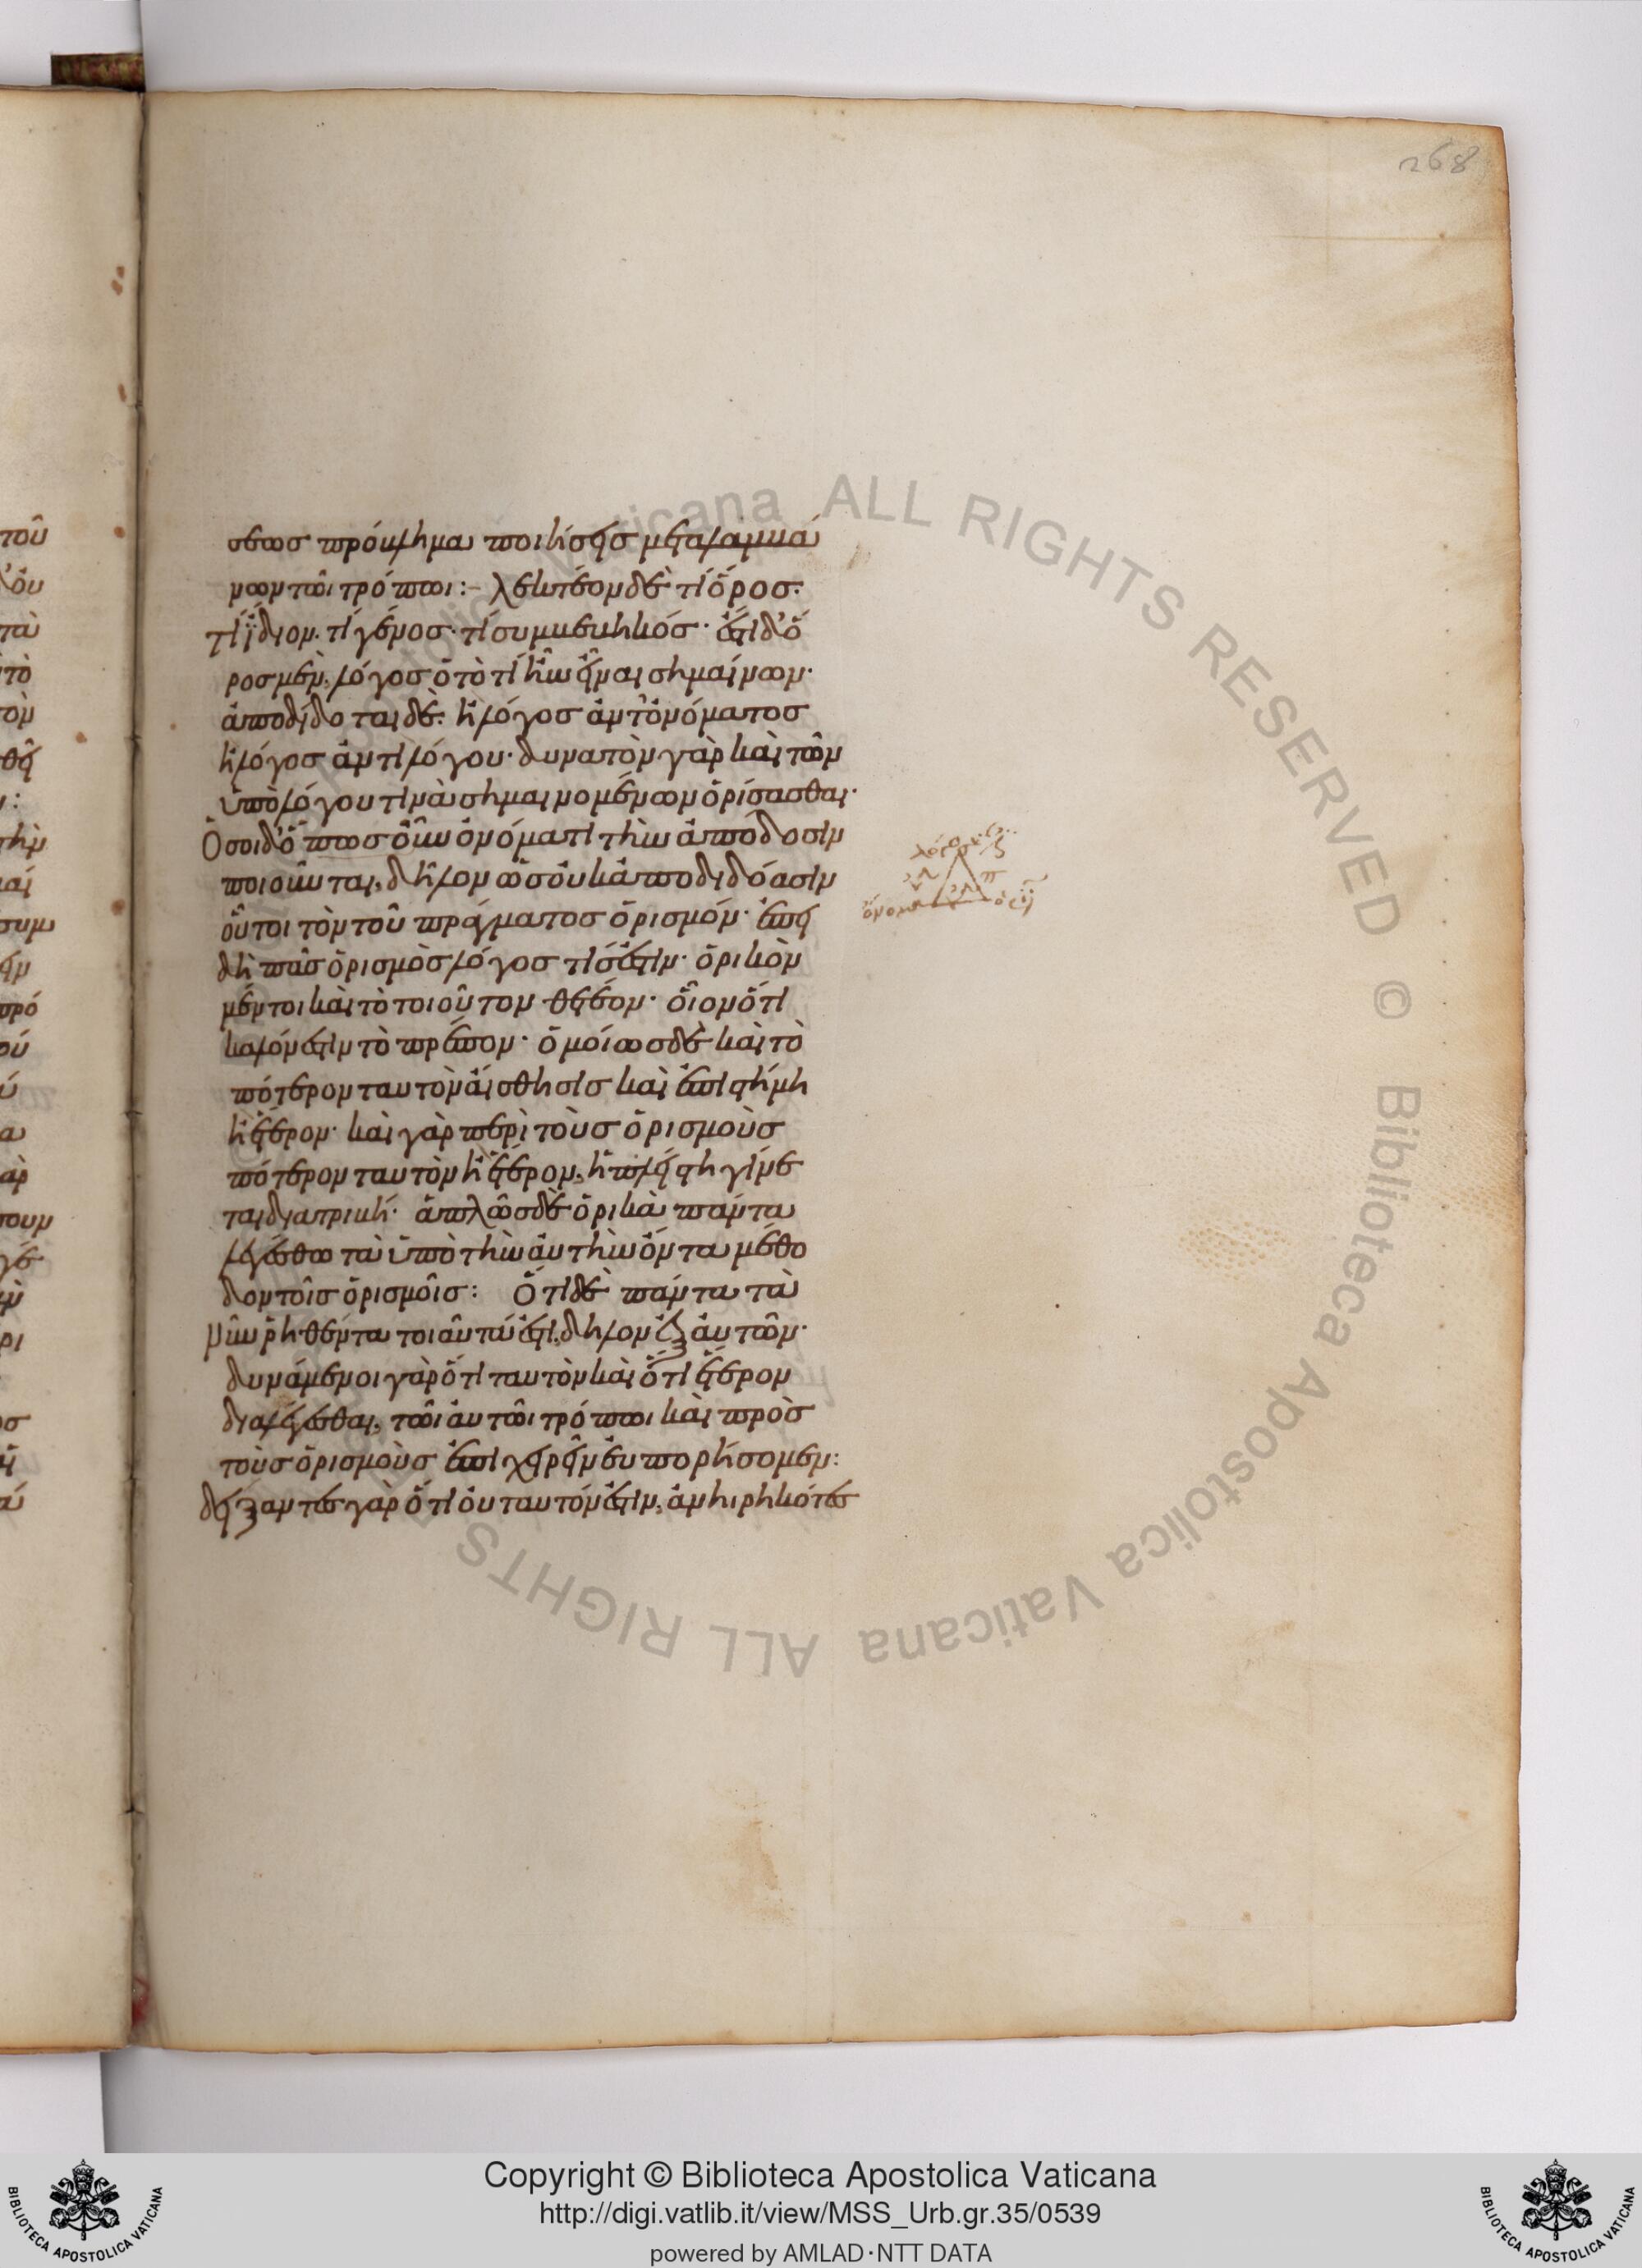 268
σεωσ πρόβλημα ποιήσεισ μεταλαμβά
νων τῶι τρόπωι :– λεκτέον δὲ τί ὅροσ·
τί ἴδιον· τί γένοσ· τί συμβεβηκόσ· ἔστι δ' ὅ
ροσ μὲν, λόγοσ ὁ τὸ τί ἦν εἶναι σημαίνων·
ἀποδίδοται δὲ· ἢ λόγοσ ἀντ' ὀνόματοσ
ἢ λόγοσ ἀντὶ λόγου· δυνατὸν γὰρ καὶ τῶν
ὑπὸ λόγου τινὰ σημαινομένων ὁρίσασθαι·
Ὅσοι δ' ὅπωσ οὖν ὀνόματι τὴν ἀπόδοσιν
ποιοῦνται, δῆλον ὡσ οὐκ ἀποδιδόασιν
οὗτοι τὸν τοῦ πράγματοσ ὁρισμόν· ἐπει
δὴ πᾶσ ὁρισμὸσ λόγοσ τίσ ἐστιν· ὁρικὸν
μέντοι καὶ τὸ τοιοῦτον θετέον· οἷον ὅτι
καλόν ἐστιν τὸ πρέπον· ὁμοίωσ δὲ καὶ τὸ
πότερον ταυτὸν αἴσθησισ καὶ ἐπιστήμη
ἢ ἕτερον· καὶ γὰρ περὶ τοὺσ ὁρισμοὺσ
πότερον ταυτὸν ἢ ἕτερον, ἡ πλείστη γίνε
ται διατριβή· ἁπλῶσ δὲ ὁρικὰ πάντα
λεγέσθω τὰ ὑπὸ τὴν αὐτὴν ὄντα μέθο
δον τοῖσ ὁρισμοῖσ : Ὅτι δὲ πάντα τὰ
νῦν ῥηθέντα τοιαῦτά ἐστι, δῆλον ἐξ αὐτῶν·
δυνάμενοι γὰρ ὅτι ταυτὸν καὶ ὅτι ἕτερον
διαλέγεσθαι, τῶι αὐτῶι τρόπωι καὶ πρὸσ
τοὺσ ὁρισμοὺσ ἐπιχειρεῖν εὐπορήσομεν :
δείξαντεσ γὰρ ὅτι οὐ ταυτόν ἐστιν, ἀνηιρηκότεσ
ALL RIGHTS RESERVED © Biblioteca Apostolica Vaticana ALL RIGHTS
Copyright © Biblioteca Apostolica Vaticana
http://digi.vatlib.it/view/MSS_Urb.gr.35/0539
powered by AMLAD·NTT DATA
BIBLIOTECA APOSTOLICA VATICANA
BIBLIOTECA APOSTOLICA VATICANA